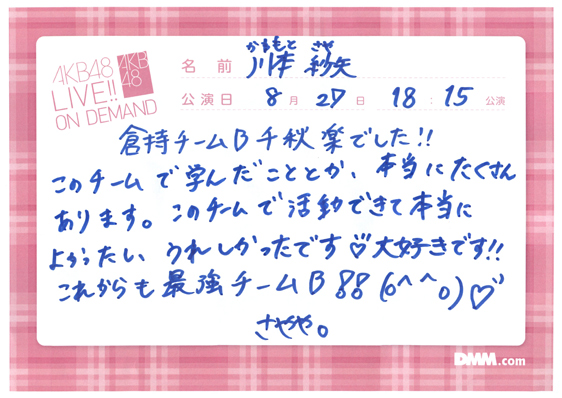 AKB48
LIVE!!
ON DEMAND
AKB
48
かわもと さや
名前 川本 紗矢
公演日 8月27日 18:15公演
倉持チームB千秋楽でした!!
このチームで学んだこととか、本当にたくさん
あります。このチームで活動できて本当に
うれしかったです♡大好きです!!
これからも最強チームB!!(o^^o)♡
さやや。
DMM.com